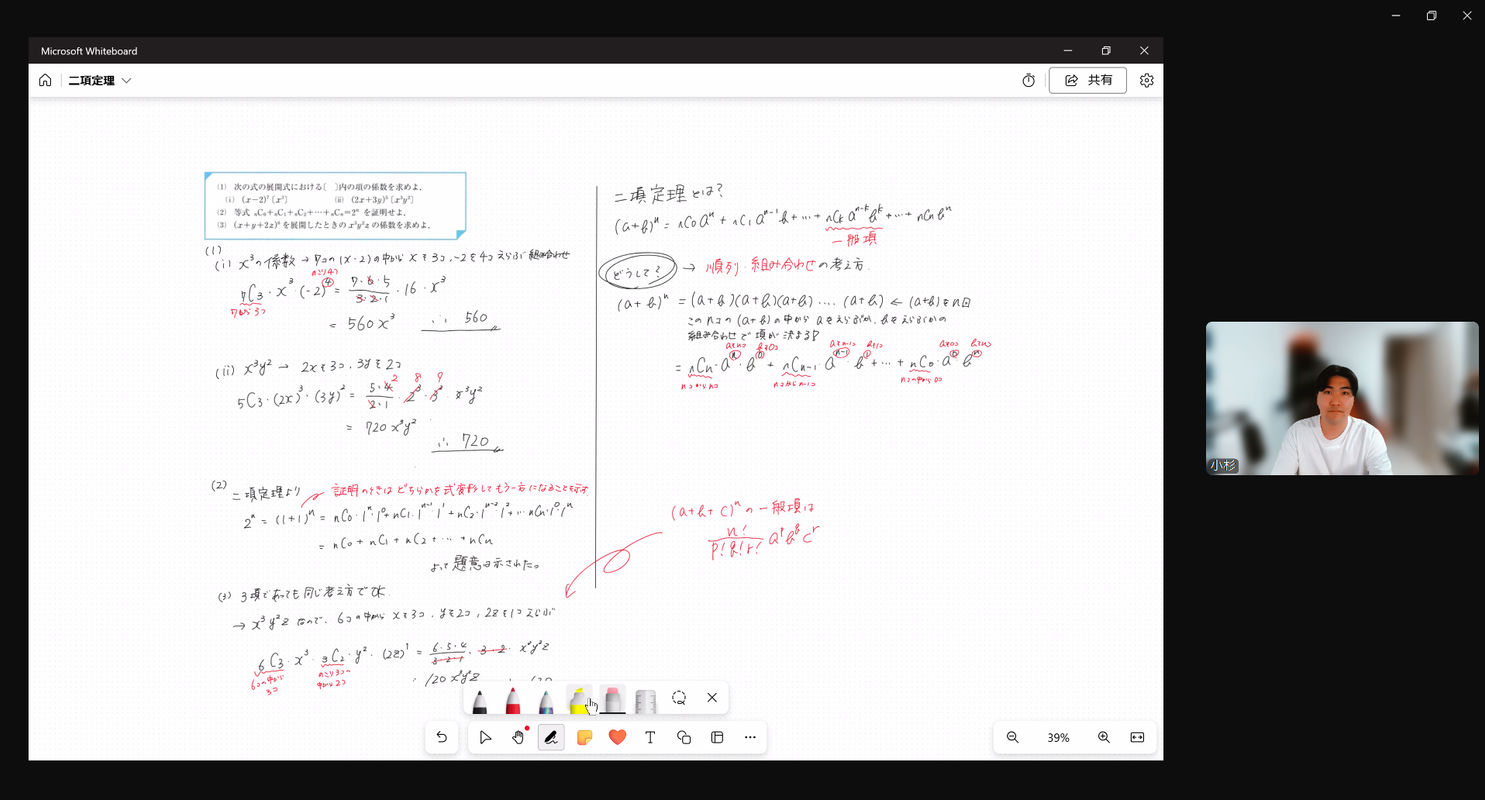 Microsoft Whiteboard
二項定理
共有
(1) 次の式の展開式における[ ]内の項の係数を求めよ.
(i) (x−2)⁷ [x³] (ii) (2x+3y)⁵ [x³y²]
(2) 等式 ₙC₀+ₙC₁+ₙC₂+⋯+ₙCₙ=2ⁿ を証明せよ.
(3) (x+y+2z)⁶ を展開したときの x³y²z の係数を求めよ.
(1)
(i) x³の係数 → 7コの(x-2)の中から xを3コ, -2を4コえらぶ組み合わせ
のこり4つ
₇C₃・x³(-2)⁴ = 7・6・5/3・2・1・16・x³
7から3コ
= 560x³ ∴ 560
(ii) x³y² → 2xを3コ, 3yを2コ
2 8 9
₅C₃・(2x)³・(3y)² = 5・4/2・1・2³・3²・x³y²
= 720x³y²
∴ 720
(2) 二項定理より
証明のときはどちらかを式変形してもう一方になることを示す
2ⁿ = (1+1)ⁿ = nC₀・1ⁿ・1⁰+nC₁・1ⁿ⁻¹・1¹+nC₂・1ⁿ⁻²・1²+⋯nCn・1⁰・1ⁿ
= nC₀ + nC₁ + nC₂ + ⋯ + nCn
よって題意は示された。
(3) 3項であっても同じ考え方でOK.
→ x³y²z なので、6コの中から xを3コ, yを2コ, 2zを1コえらぶ
₆C₃・x³・₃C₂・y²・(2z)¹ = 6・5・4/3・2・1・3・2・x³y²z
6コの中から
3コ
のこり3コの
中から2コ
120x³y²z
二項定理とは?
(a+b)ⁿ = nC₀aⁿ + nC₁aⁿ⁻¹b+⋯+nCₖaⁿ⁻ᵏbᵏ+⋯+nCnbⁿ
一般項
どうして? → 順列・組み合わせの考え方.
(a+b)ⁿ = (a+b)(a+b)(a+b)....(a+b) ← (a+b)をn回
このnコの(a+b)の中からaをえらぶか, bをえらぶかの
組み合わせで項が決まる!
aをnコ bを0コ aをn-1コ bを1コ aを0コ bをnコ
= nCn・aⁿ・b⁰ + nCn-1・aⁿ⁻¹・b¹+⋯+ nC₀・a⁰bⁿ
nコからnコ nコからn-1コ nコの中から0コ
(a+b+c)ⁿの一般項は
n!/p!q!r! aᵖbᑫcʳ
39%
小杉